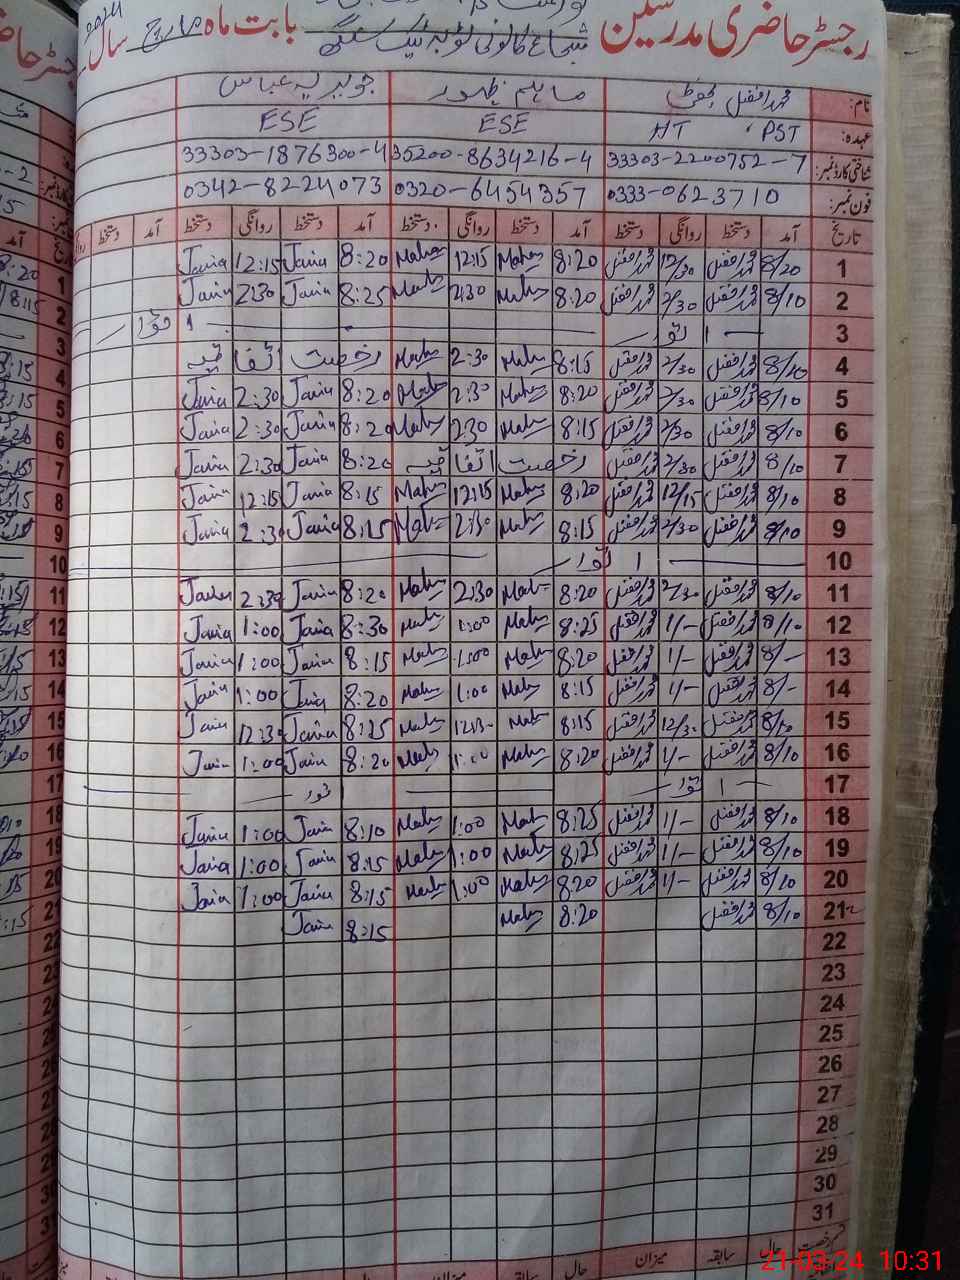 رجسٹر حاضری مدرسین شجاع کالونی ٹوبہ ٹیک سنگھ بابت ماہ مارچ سال
نام: محمد افضل ماہم ظہور جویریہ عباس
عہدہ: PST، HT ESE ESE
شناختی کارڈ نمبر: 33303-2200752-7 35200-8634216-4 33303-1876300-4
فون نمبر: 0333-0623710 0320-6454357 0342-8224073
تاریخ آمد دستخط روانگی دستخط آمد دستخط روانگی دستخط آمد دستخط روانگی دستخط آمد دستخط
1 8/20 محمد افضل 12/30 محمد افضل 8:20 Mahm 12:15 Mahm 8:20 Javia 12:15 Javia
2 8/10 محمد افضل 2/30 محمد افضل 8:20 Mahm 2:30 Mahm 8:25 Javia 2:30 Javia
3 اتوار اتوار
4 8/10 محمد افضل 2/30 محمد افضل 8:15 Mahm 2:30 Mahm رخصت اتفاقیہ
5 8/10 محمد افضل 2/30 محمد افضل 8:20 Mahm 2:30 Mahm 8:20 Javia 2:30 Javia
6 8/10 محمد افضل 2/30 محمد افضل 8:15 Mahm 2:30 Mahm 8:20 Javia 2:30 Javia
7 8/10 محمد افضل 2/30 محمد افضل رخصت اتفاقیہ 8:20 Javia 2:30 Javia
8 8/10 محمد افضل 12/15 محمد افضل 8:20 Mahm 12:15 Mahm 8:15 Javia 12:15 Javia
9 8/10 محمد افضل 2/30 محمد افضل 8:15 Mahm 2:30 Mahm 8:15 Javia 2:30 Javia
10 اتوار
11 8/10 محمد افضل 2/30 محمد افضل 8:20 Mahm 2:30 Mahm 8:20 Javia 2:30 Javia
12 8/10 محمد افضل 1/- محمد افضل 8:25 Mahm 1:00 Mahm 8:30 Javia 1:00 Javia
13 8/- محمد افضل 1/- محمد افضل 8:20 Mahm 1:00 Mahm 8:15 Javia 1:00 Javia
14 8/- محمد افضل 1/- محمد افضل 8:15 Mahm 1:00 Mahm 8:20 Javia 1:00 Javia
15 8/10 محمد افضل 12/30 محمد افضل 8:15 Mahm 12:30 Mahm 8:25 Javia 12:30 Javia
16 8/10 محمد افضل 1/- محمد افضل 8:20 Mahm 1:00 Mahm 8:20 Javia 1:00 Javia
17 اتوار اتوار
18 8/10 محمد افضل 1/- محمد افضل 8:25 Mahm 1:00 Mahm 8:10 Javia 1:00 Javia
19 8/10 محمد افضل 1/- محمد افضل 8:25 Mahm 1:00 Mahm 8:15 Javia 1:00 Javia
20 8/10 محمد افضل 1/- محمد افضل 8:20 Mahm 1:00 Mahm 8:15 Javia 1:00 Javia
21 8/10 محمد افضل 8:20 Mahm 8:15 Javia
22
23
24
25
26
27
28
29
30
31
رخصت حال سابقہ میزان حال سابقہ میزان
21-03-24 10:31